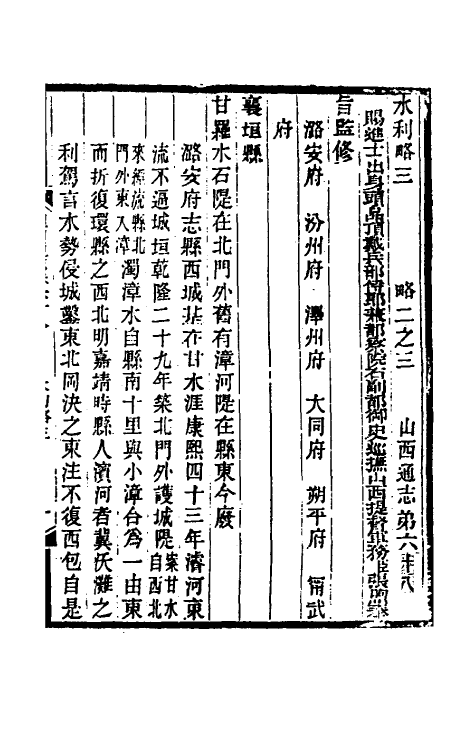 水利略三　略二之三　山西通志第六十八
賜進士出身頭品頂戴兵部侍郎兼都察院右副都御史巡撫山西提督軍務張
旨監修
潞安府　汾州府　澤州府　大同府　朔平府　甯武
府
襄垣縣
甘羅水石隄在北門外舊有漳河隄在縣東今廢
潞安府志縣西城基在甘水涯康熙四十三年濬河東
流不逼城垣乾隆二十九年築北門外護城隄案甘水自西北
來經流縣北門外東入漳濁漳水自縣南十里與小漳合爲一由東
而折復環縣之西北明嘉靖時縣人濱河者冀沃灘之
利駕言水勢侵城鑿東北岡決之東注不復西包自是